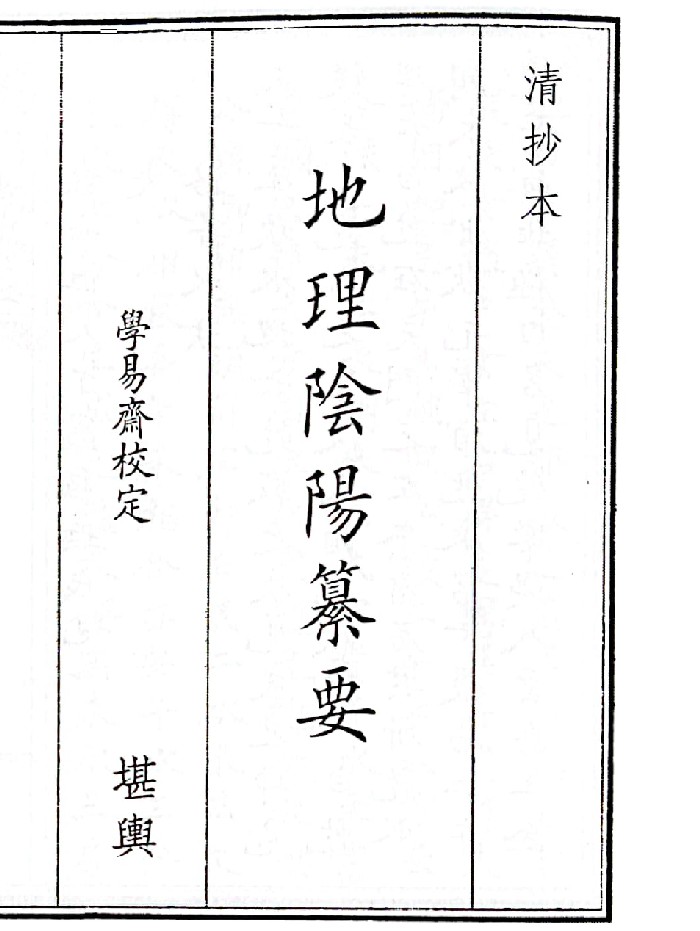 清抄本
地理陰陽纂要
學易齋校定
堪輿